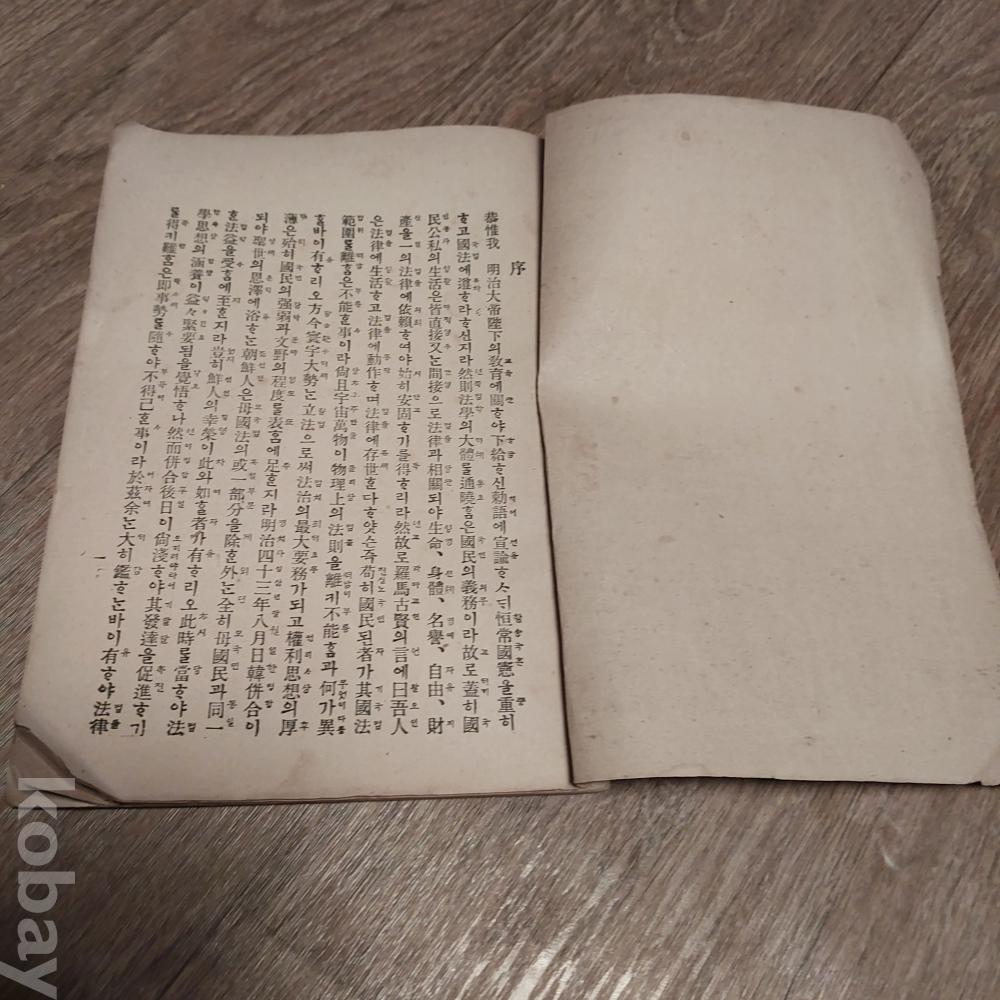 序
恭惟我 明治大帝陛下의敎育에關ᄒᆞ야下給ᄒᆞ신勅語에宣諭ᄒᆞ사ᄃᆡ恒常國憲을重히
ᄒᆞ고國法에遵ᄒᆞ라ᄒᆞ신지라然則法學의大體를通曉ᄒᆞᆷ은國民의義務이라故로蓋히國
民公私의生活은皆直接又ᄂᆞᆫ間接으로法律과相關되야生命、身體、名譽、自由、財
產을一의法律에依賴ᄒᆞ여야始히安固ᄒᆞ기를得ᄒᆞ리라然故로羅馬古賢의言에曰吾人
은法律에生活ᄒᆞ고法律에動作ᄒᆞ며法律에存世ᄒᆞᆫ다ᄒᆞ얏슨즉苟히國民된者가其國法
範圍를離ᄒᆞᆷ은不能ᄒᆞᆫ事이라尙且宇宙萬物이物理上의法則을離키不能ᄒᆞᆷ과何가異
ᄒᆞᆯ바이有ᄒᆞ리오方今寰宇大勢ᄂᆞᆫ立法으로써法治의最大要務가되고權利思想의厚
薄은殆히國民의强弱과文野의程度를表ᄒᆞᆷ에足ᄒᆞᆫ지라明治四十三年八月日韓併合이
되야聖世의恩澤에浴ᄒᆞᄂᆞᆫ朝鮮人은母國法의或一部分을除ᄒᆞᆫ外ᄂᆞᆫ全히母國民과同一
ᄒᆞᆫ法益을受ᄒᆞᆷ에至ᄒᆞᆫ지라豈히鮮人의幸榮이此와如ᄒᆞᆫ者가有ᄒᆞ리오此時를當ᄒᆞ야法
學思想의涵養이益々緊要됨을覺悟ᄒᆞ나然而併合後日이尙淺ᄒᆞ야其發達을促進ᄒᆞ기
를得키難ᄒᆞᆷ은卽事勢를隨ᄒᆞ야不得已ᄒᆞᆫ事이라於玆余ᄂᆞᆫ大히鑑ᄒᆞᄂᆞᆫ바이有ᄒᆞ야法律
一
kobay